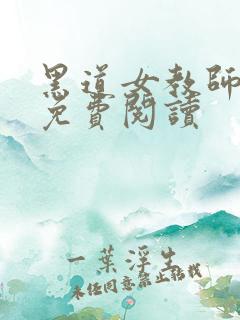 黑道女教師
免費閱讀
一葉浮生
未經同意禁止轉載